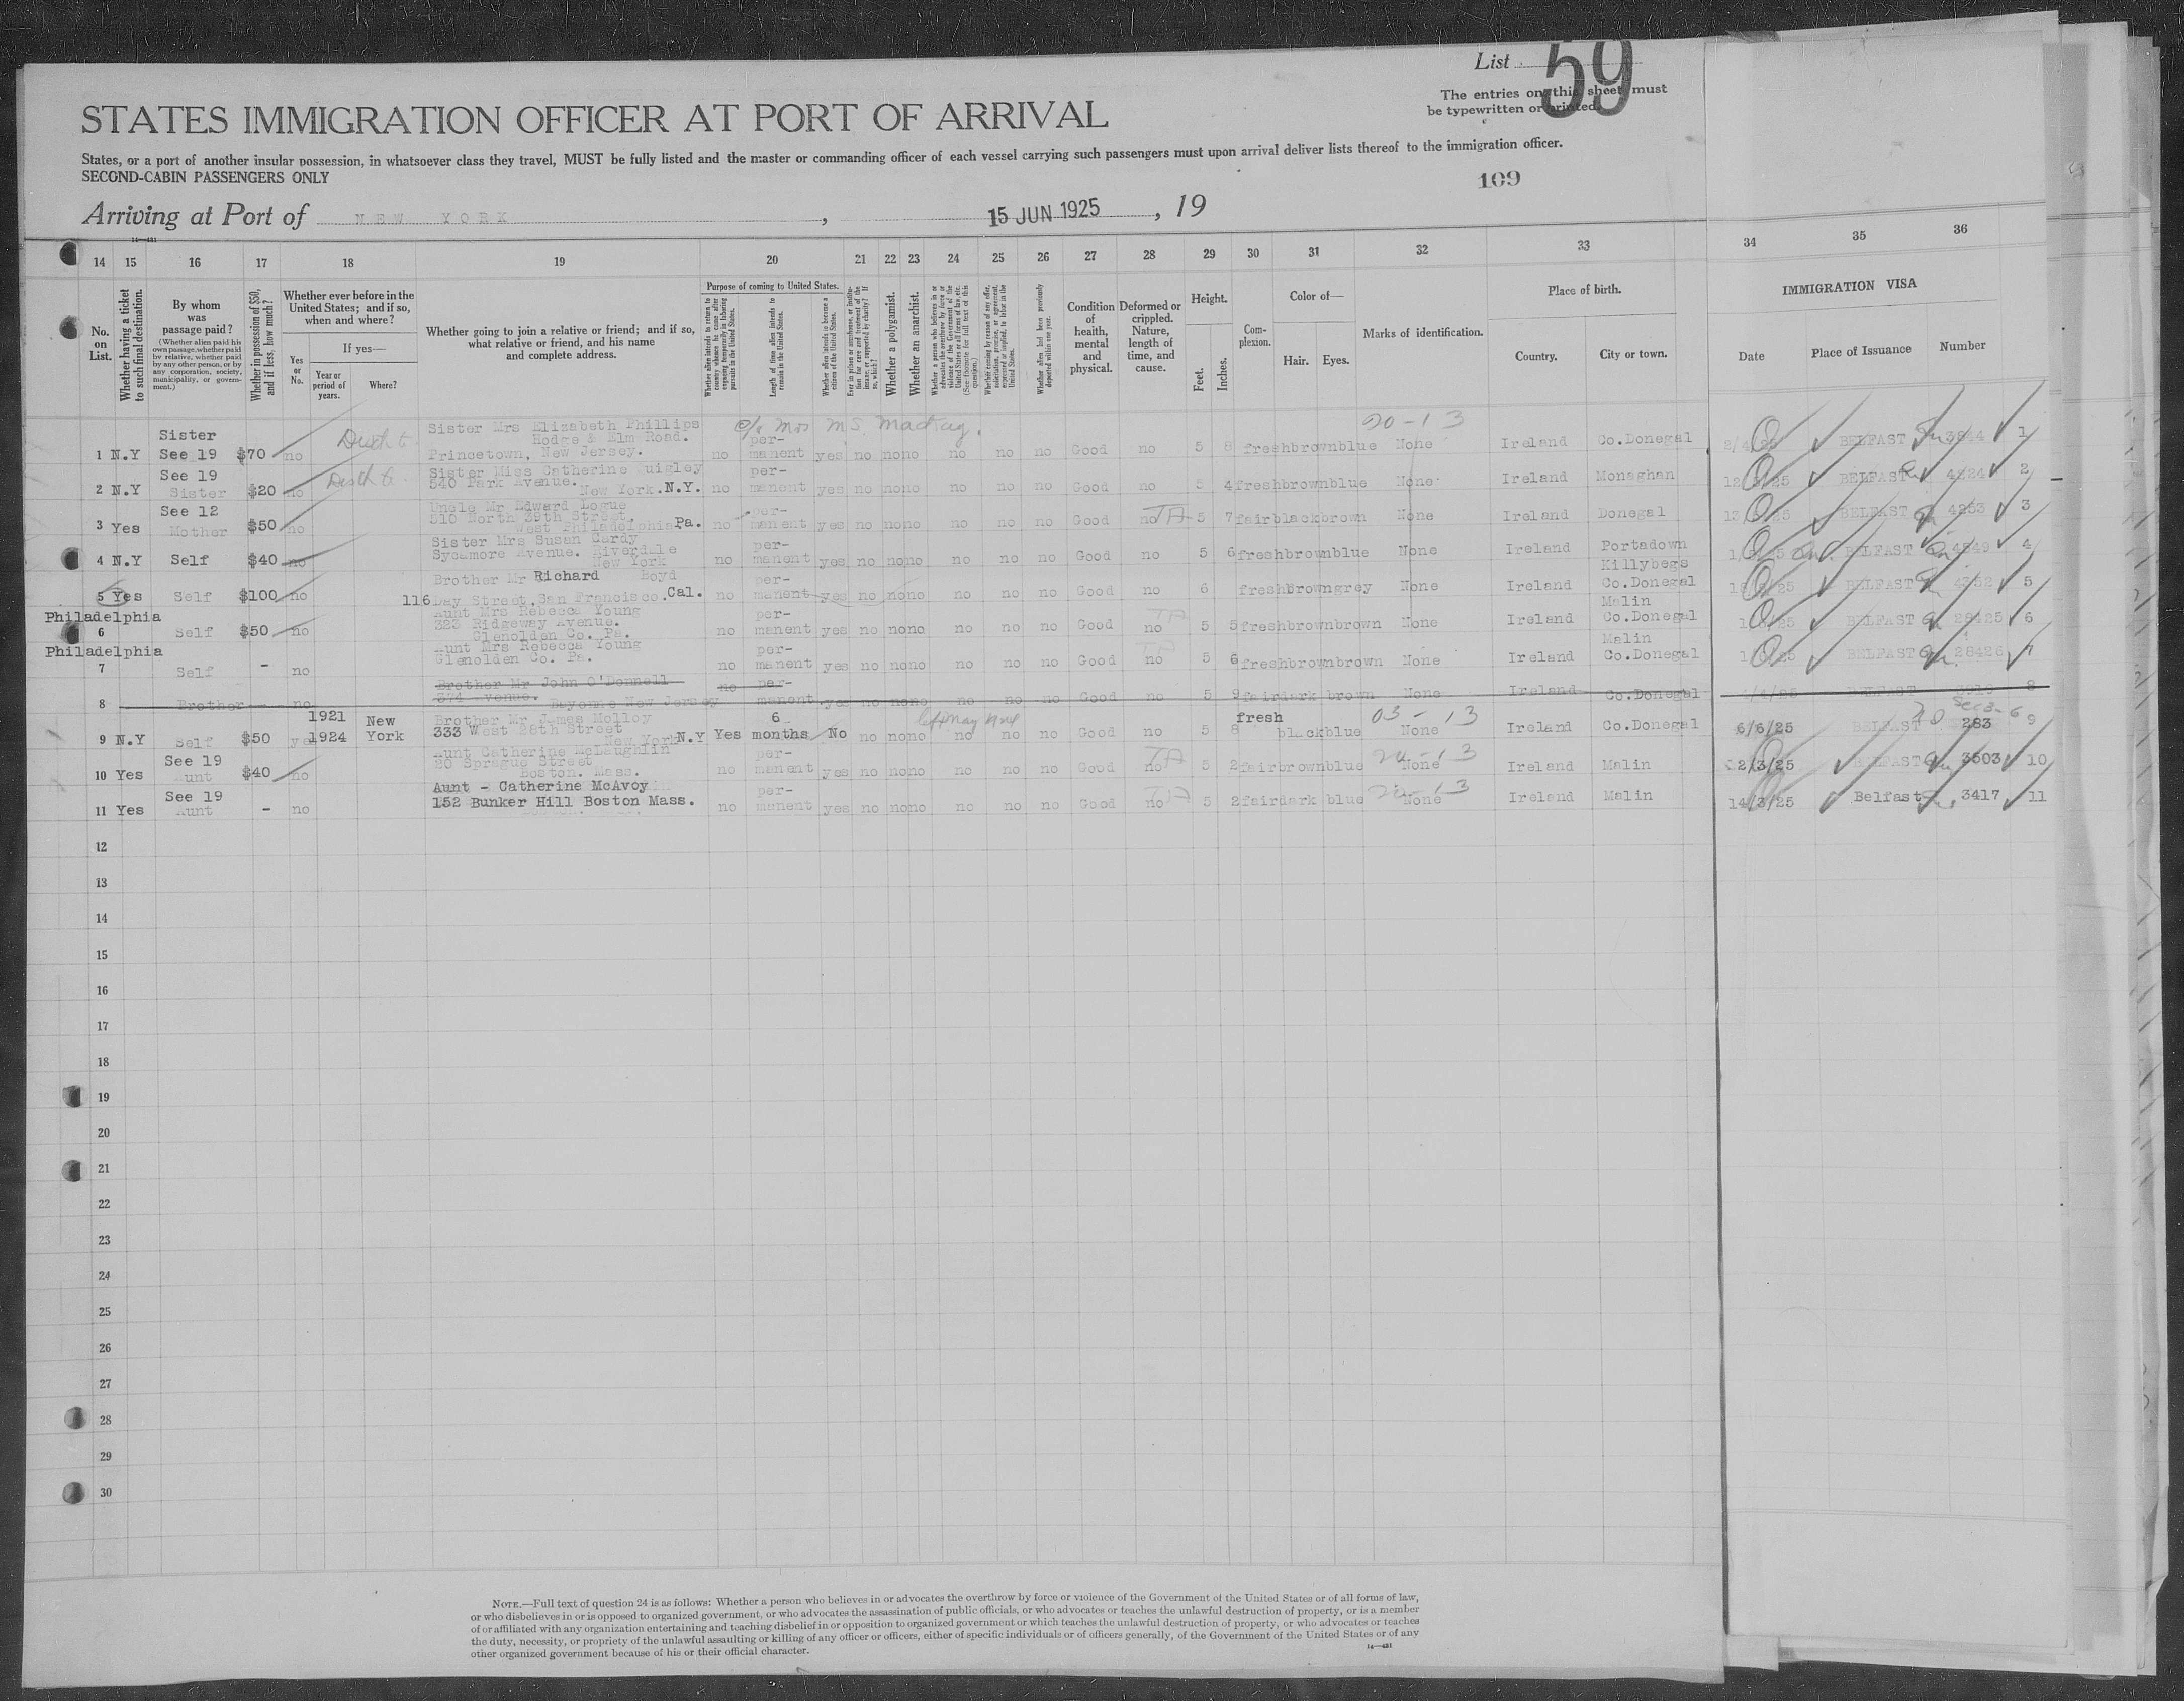 List 59
The entries on this sheet must
be typewritten or printed.
STATES IMMIGRATION OFFICER AT PORT OF ARRIVAL
States, or a port of another insular possession, in whatsoever class they travel, MUST be fully listed and the master or commanding officer of each vessel carrying such passengers must upon arrival deliver lists thereof to the immigration officer.
SECOND-CABIN PASSENGERS ONLY
109
Arriving at Port of NEW YORK, 15 JUN 1925, 19
14 15 16 17 18 19 20 21 22 23 24 25 26 27 28 29 30 31 32 33 34 35 36
No. on List.
Whether having a ticket to such final destination.
By whom was passage paid?
(Whether alien paid his own passage, whether paid by relative, whether paid by any other person, or by any corporation, society, municipality, or government.)
Whether in possession of $50, and if less, how much?
Whether ever before in the United States; and if so, when and where?
Yes or No.
If yes—
Year or period of years.
Where?
Whether going to join a relative or friend; and if so, what relative or friend, and his name and complete address.
Purpose of coming to United States.
Length of time alien intends to remain in the United States.
Whether alien intends to become a citizen of the United States.
Whether a polygamist.
Whether an anarchist.
Condition of health, mental and physical.
Deformed or crippled. Nature, length of time, and cause.
Height.
Feet. Inches.
Complexion.
Color of—
Hair. Eyes.
Marks of identification.
Place of birth.
Country. City or town.
IMMIGRATION VISA
Date Place of Issuance Number
c/o Mrs M S. Mackay. 20-13
1 N.Y Sister See 19 $70 no Sister Mrs Elizabeth Phillips Hodge & Elm Road. Princetown, New Jersey. no permanent yes no no no no no no Good no 5 8 fresh brown blue None Ireland Co.Donegal BELFAST 3844 1
2 N.Y See 19 Sister $20 no Sister Miss Catherine Quigley 540 Park Avenue. New York. N.Y. no permanent yes no no no no no no Good no 5 4 fresh brown blue None Ireland Monaghan BELFAST 4824 2
3 Yes See 12 Mother $50 no Uncle Mr Edward Logue 510 North 39th Street, West Philadelphia Pa. no permanent yes no no no no no no Good no 5 7 fair black brown None Ireland Donegal BELFAST 4253 3
4 N.Y Self $40 no Sister Mrs Susan Cardy Sycamore Avenue. Riverdale New York no permanent yes no no no no no no Good no 5 6 fresh brown blue None Ireland Portadown BELFAST 4549 4
5 Yes Self $100 no Brother Mr Richard Boyd 116 Day Street, San Francisco. Cal. no permanent yes no no no no no no Good no 6 fresh brown grey None Ireland Killybegs Co.Donegal BELFAST 4352 5
Philadelphia
6 Self $50 no Aunt Mrs Rebecca Young 323 Ridgeway Avenue. Glenolden Co. Pa. no permanent yes no no no no no no Good no 5 5 fresh brown brown None Ireland Malin Co.Donegal BELFAST 28425 6
Philadelphia
7 Self - no Aunt Mrs Rebecca Young Glenolden Co. Pa. no permanent yes no no no no no no Good no 5 6 fresh brown brown None Ireland Malin Co.Donegal BELFAST 28426 7
8 Brother - no Brother Mr John O'Donnell 374 Avenue. Bayonne New Jersey no permanent yes no no no no no no Good no 5 9 fair dark brown None Ireland Co.Donegal BELFAST 8
9 N.Y Self $50 yes 1921 1924 New York Brother Mr James Molloy 333 West 28th Street New York N.Y Yes 6 months No no no no no no no Good no 5 8 fresh black blue 03-13 None Ireland Co.Donegal 6/6/25 BELFAST 283 9
10 Yes See 19 Aunt $40 no Aunt Catherine McLaughlin 20 Sprague Street Boston. Mass. no permanent yes no no no no no no Good no 5 2 fair brown blue None Ireland Malin 2/3/25 BELFAST 3503 10
11 Yes See 19 Aunt - no Aunt - Catherine McAvoy 152 Bunker Hill Boston Mass. no permanent yes no no no no no no Good no 5 2 fair dark blue None Ireland Malin 14/3/25 Belfast 3417 11
12
13
14
15
16
17
18
19
20
21
22
23
24
25
26
27
28
29
30
NOTE.—Full text of question 24 is as follows: Whether a person who believes in or advocates the overthrow by force or violence of the Government of the United States or of all forms of law,
or who disbelieves in or is opposed to organized government, or who advocates the assassination of public officials, or who advocates or teaches the unlawful destruction of property, or is a member
of or affiliated with any organization entertaining and teaching disbelief in or opposition to organized government or which teaches the unlawful destruction of property, or who advocates or teaches
the duty, necessity, or propriety of the unlawful assaulting or killing of any officer or officers, either of specific individuals or of officers generally, of the Government of the United States or of any
other organized government because of his or their official character.
14—431